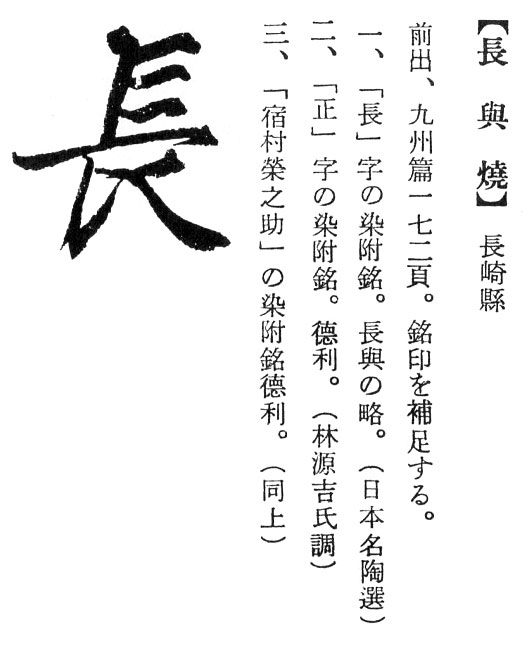 【長與燒】 長崎縣
前出、九州篇一七二頁。銘印を補足する。
一、「長」字の染附銘。長與の略。（日本名陶選）
二、「正」字の染附銘。德利。（林源吉氏調）
三、「宿村榮之助」の染附銘德利。（同上）
長